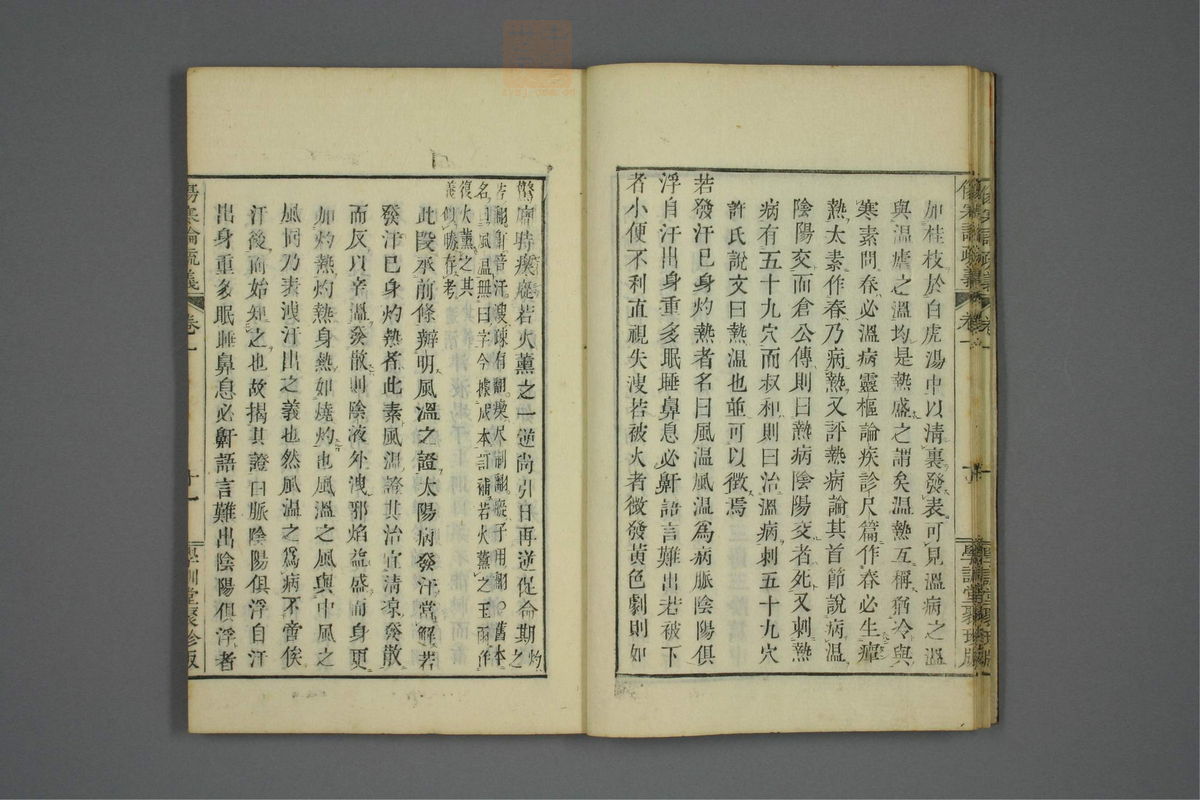 加桂枝於白虎湯中以清裏發表可見溫病之溫
與溫瘧之溫均是熱盛之謂矣溫熱互稱猶冷與
寒素問春必溫病靈樞論疾診尺篇作春必生癉
熱太素作春乃病熱又評熱病論其首節說病溫
陰陽交而倉公傳則曰熱病陰陽交者死又刺熱
病有五十九穴而叔和則曰治溫病刺五十九穴
許氏說文曰熱溫也並可以徵焉
若發汗已身灼熱者名曰風溫風溫為病脈陰陽俱
浮自汗出身重多眠睡鼻息必鼾語言難出若被下
者小便不利直視失溲若被火者微發黃色劇則如
驚癇時瘛瘲若火薰之一逆尚引日再逆促命期
名曰風溫無曰字今據成本訂補若火薰之玉函作
復火薰之其
義似勝存考
此段承前條辯明風溫之證太陽病發汗當解若
發汗已身灼熱者此素風溫證其治宜清涼發散
而反以辛溫發散則陰液外洩邪焰益盛而身更
如灼熱灼熱身熱如燒灼也風溫之風與中風之
風同乃表洩汗出之義也然風溫之為病不啻俟
汗後而始知之也故揭其證曰脈陰陽俱浮自汗
出身重多眠睡鼻息必鼾語言難出陰陽俱浮者
傷寒論疏義
卷一
十一
學訓堂聚珍版